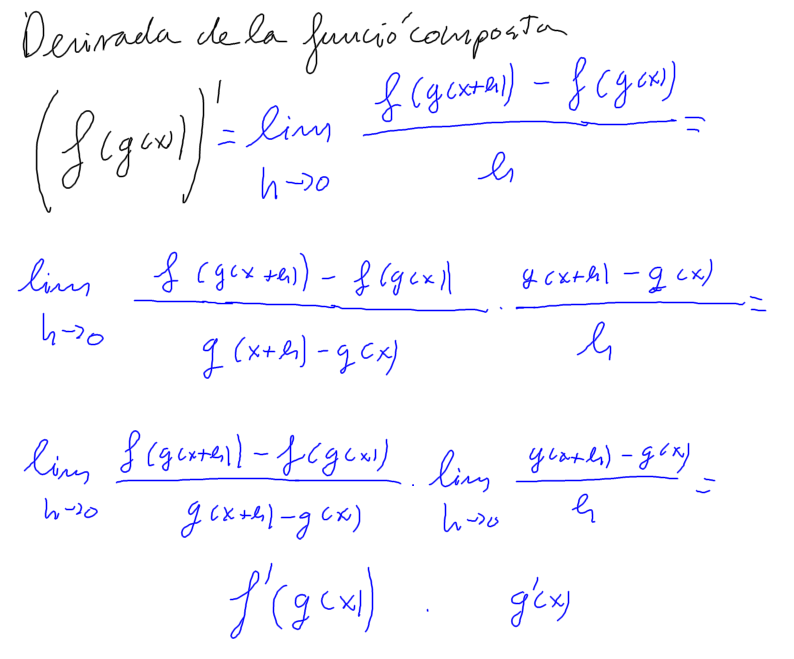 Derivada de la funció composta
(f(g(x)))' = lim h→0 f(g(x+h)) - f(g(x)) / h =
lim h→0 f(g(x+h)) - f(g(x)) / g(x+h) - g(x) · g(x+h) - g(x) / h =
lim h→0 f(g(x+h)) - f(g(x)) / g(x+h) - g(x) · lim h→0 g(x+h) - g(x) / h =
f'(g(x)) · g'(x)